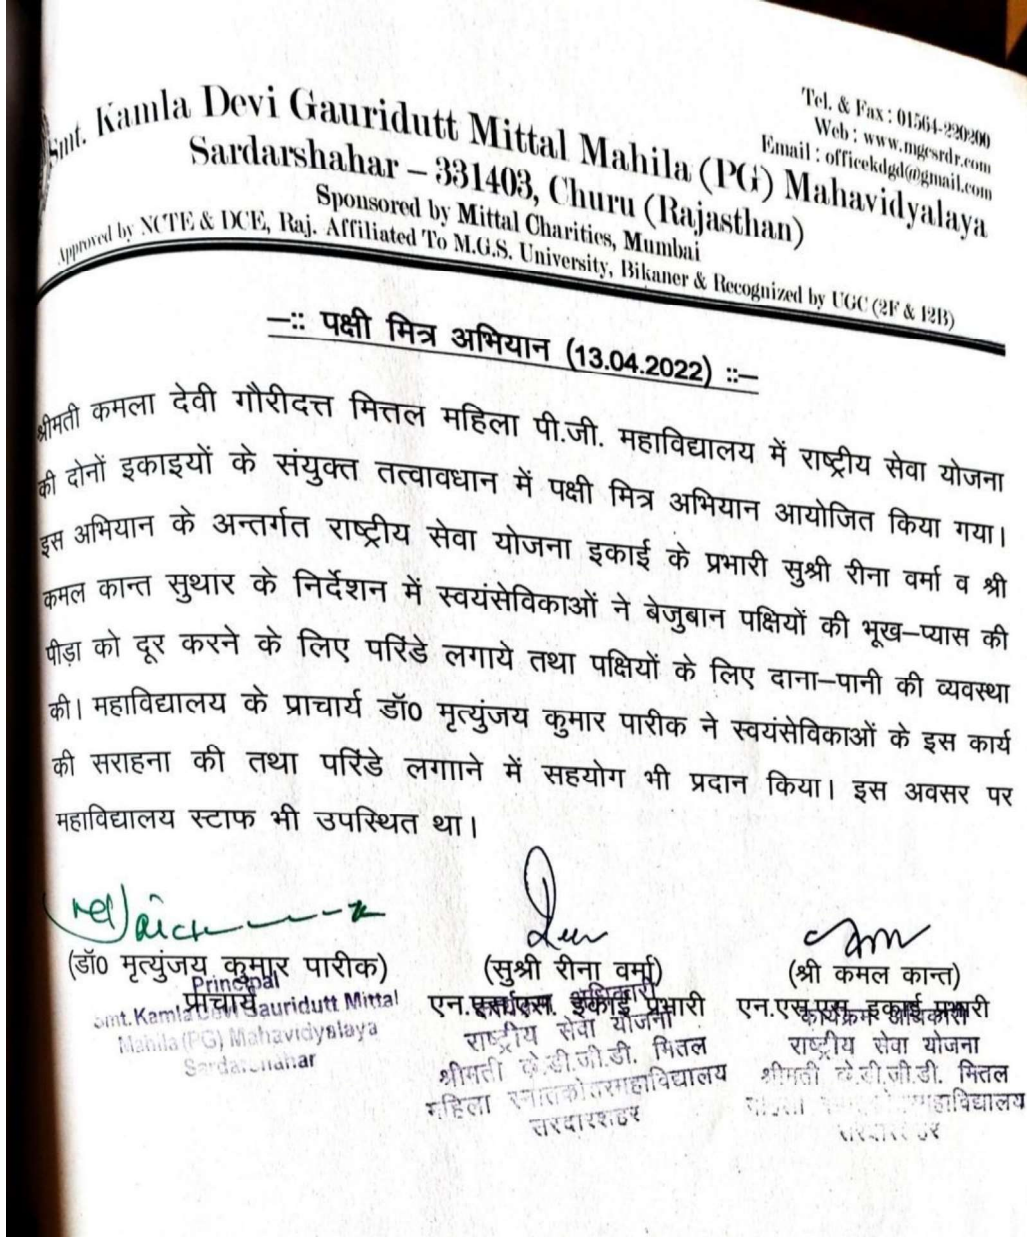 Tel. & Fax : 01564-220200
Web : www.mgcsrdr.com
Email : officekdgd@gmail.com
Smt. Kamla Devi Gauridutt Mittal Mahila (PG) Mahavidyalaya
Sardarshahar – 331403, Churu (Rajasthan)
Sponsored by Mittal Charities, Mumbai
Approved by NCTE & DCE, Raj. Affiliated To M.G.S. University, Bikaner & Recognized by UGC (2F & 12B)
–:: पक्षी मित्र अभियान (13.04.2022) ::–
श्रीमती कमला देवी गौरीदत्त मित्तल महिला पी.जी. महाविद्यालय में राष्ट्रीय सेवा योजना
की दोनों इकाइयों के संयुक्त तत्वावधान में पक्षी मित्र अभियान आयोजित किया गया।
इस अभियान के अन्तर्गत राष्ट्रीय सेवा योजना इकाई के प्रभारी सुश्री रीना वर्मा व श्री
कमल कान्त सुथार के निर्देशन में स्वयंसेविकाओं ने बेजुबान पक्षियों की भूख–प्यास की
पीड़ा को दूर करने के लिए परिंडे लगाये तथा पक्षियों के लिए दाना–पानी की व्यवस्था
की। महाविद्यालय के प्राचार्य डॉ0 मृत्युंजय कुमार पारीक ने स्वयंसेविकाओं के इस कार्य
की सराहना की तथा परिंडे लगााने में सहयोग भी प्रदान किया। इस अवसर पर
महाविद्यालय स्टाफ भी उपस्थित था।
(डॉ0 मृत्युंजय कुमार पारीक)
प्राचार्य
Principal
Smt. Kamla Devi Gauridutt Mittal
Mahila (PG) Mahavidyalaya
Sardarshahar
(सुश्री रीना वर्मा)
एन.एस.एस. इकाई प्रभारी
कार्यक्रम अधिकारी
राष्ट्रीय सेवा योजना
श्रीमती के.डी.जी.डी. मितल
महिला स्नातकोतरमहाविद्यालय
सरदारशहर
(श्री कमल कान्त)
एन.एस.एस. इकाई प्रभारी
कार्यक्रम अधिकारी
राष्ट्रीय सेवा योजना
श्रीमती के.डी.जी.डी. मितल
महाविद्यालय